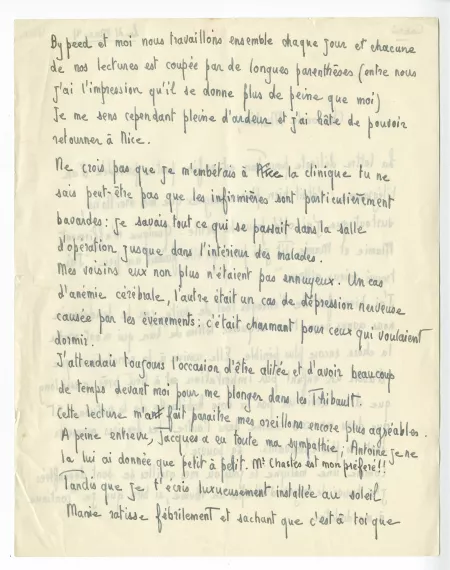 Bypeed et moi nous travaillons ensemble chaque jour et chacune
de nos lectures est coupée par de longues parenthèses (entre nous
j'ai l'impression qu'il se donne plus de peine que moi)
Je me sens cependant pleine d'ardeur et j'ai hâte de pouvoir
retourner à Nice.
Ne crois pas que je m'embêtais à la clinique tu ne
sais peut-être pas que les infirmières sont particulièrement
bavardes: je savais tout ce qui se passait dans la salle
d'opération jusque dans l'intérieur des malades.
Mes voisins eux non plus n'étaient pas ennuyeux. Un cas
d'anémie cérébrale, l'autre était un cas de dépression nerveuse
causée par les événements: c'était charmant pour ceux qui voulaient
dormir.
J'attendais toujours l'occasion d'être alitée et d'avoir beaucoup
de temps devant moi pour me plonger dans les Thibault.
Cette lecture m'a fait paraître mes oreillons encore plus agréables.
A peine entrevu, Jacques a eu toute ma sympathie; Antoine je ne
la lui ai donnée que petit à petit. Mr Chasles est mon préféré!!
Tandis que je t'écris luxueusement installée au soleil
Mamie ratisse fébrilement et sachant que c'est à toi que